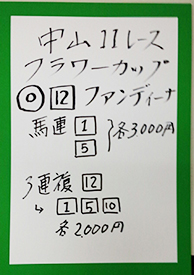 中山11レース
フラワーカップ
◎ 12 ファンディーナ
馬連 1
5 } 各3000円
3連複 12
↳ 1 5 10
各2,000円